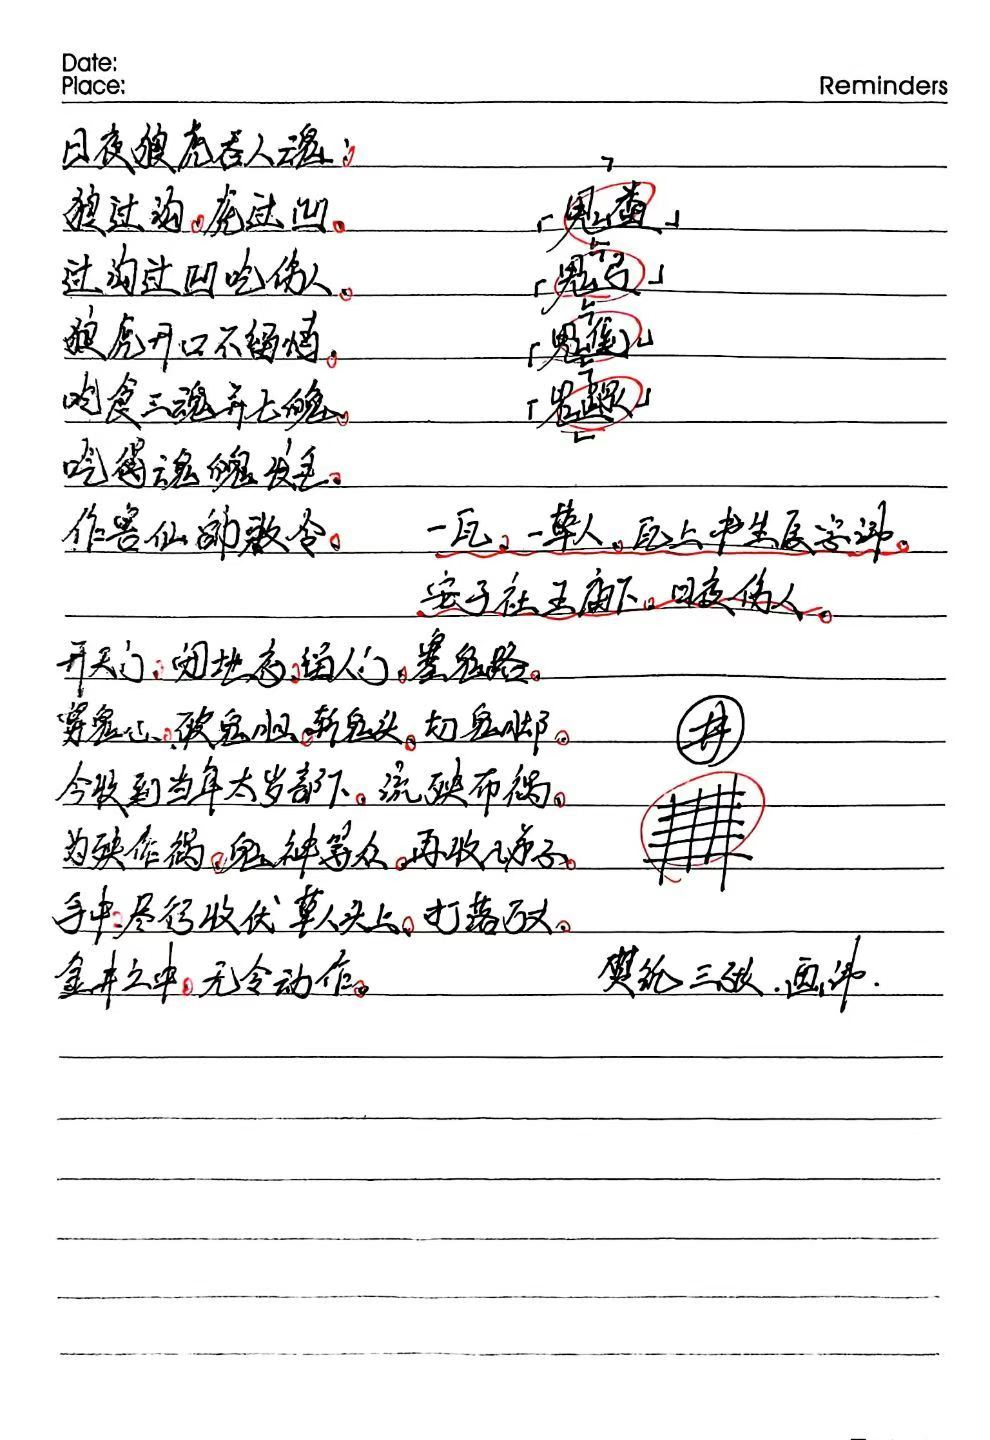 Date:
Place:
Reminders
日夜狼虎吞人魂：
狼过沟。虎过凹。
过沟过凹吃伤人。
狼虎开口不留情。
吃食三魂并七魄。
吃得魂魄发毛。
作害仙师敕令。
一瓦。一草人。瓦上书生辰字讳。
安于社王庙下。日夜伤人。
开天门：闭地府：留人门。塞鬼路。
穿鬼心。破鬼肚。斩鬼头。切鬼脚。
今收到当年太岁部下。流殃布祸。
为殃作祸。鬼神等众。再收入弟子。
手中：尽行收伏草人头上。打落万丈。
金井之中。无令动作。
井
三致.画讳.